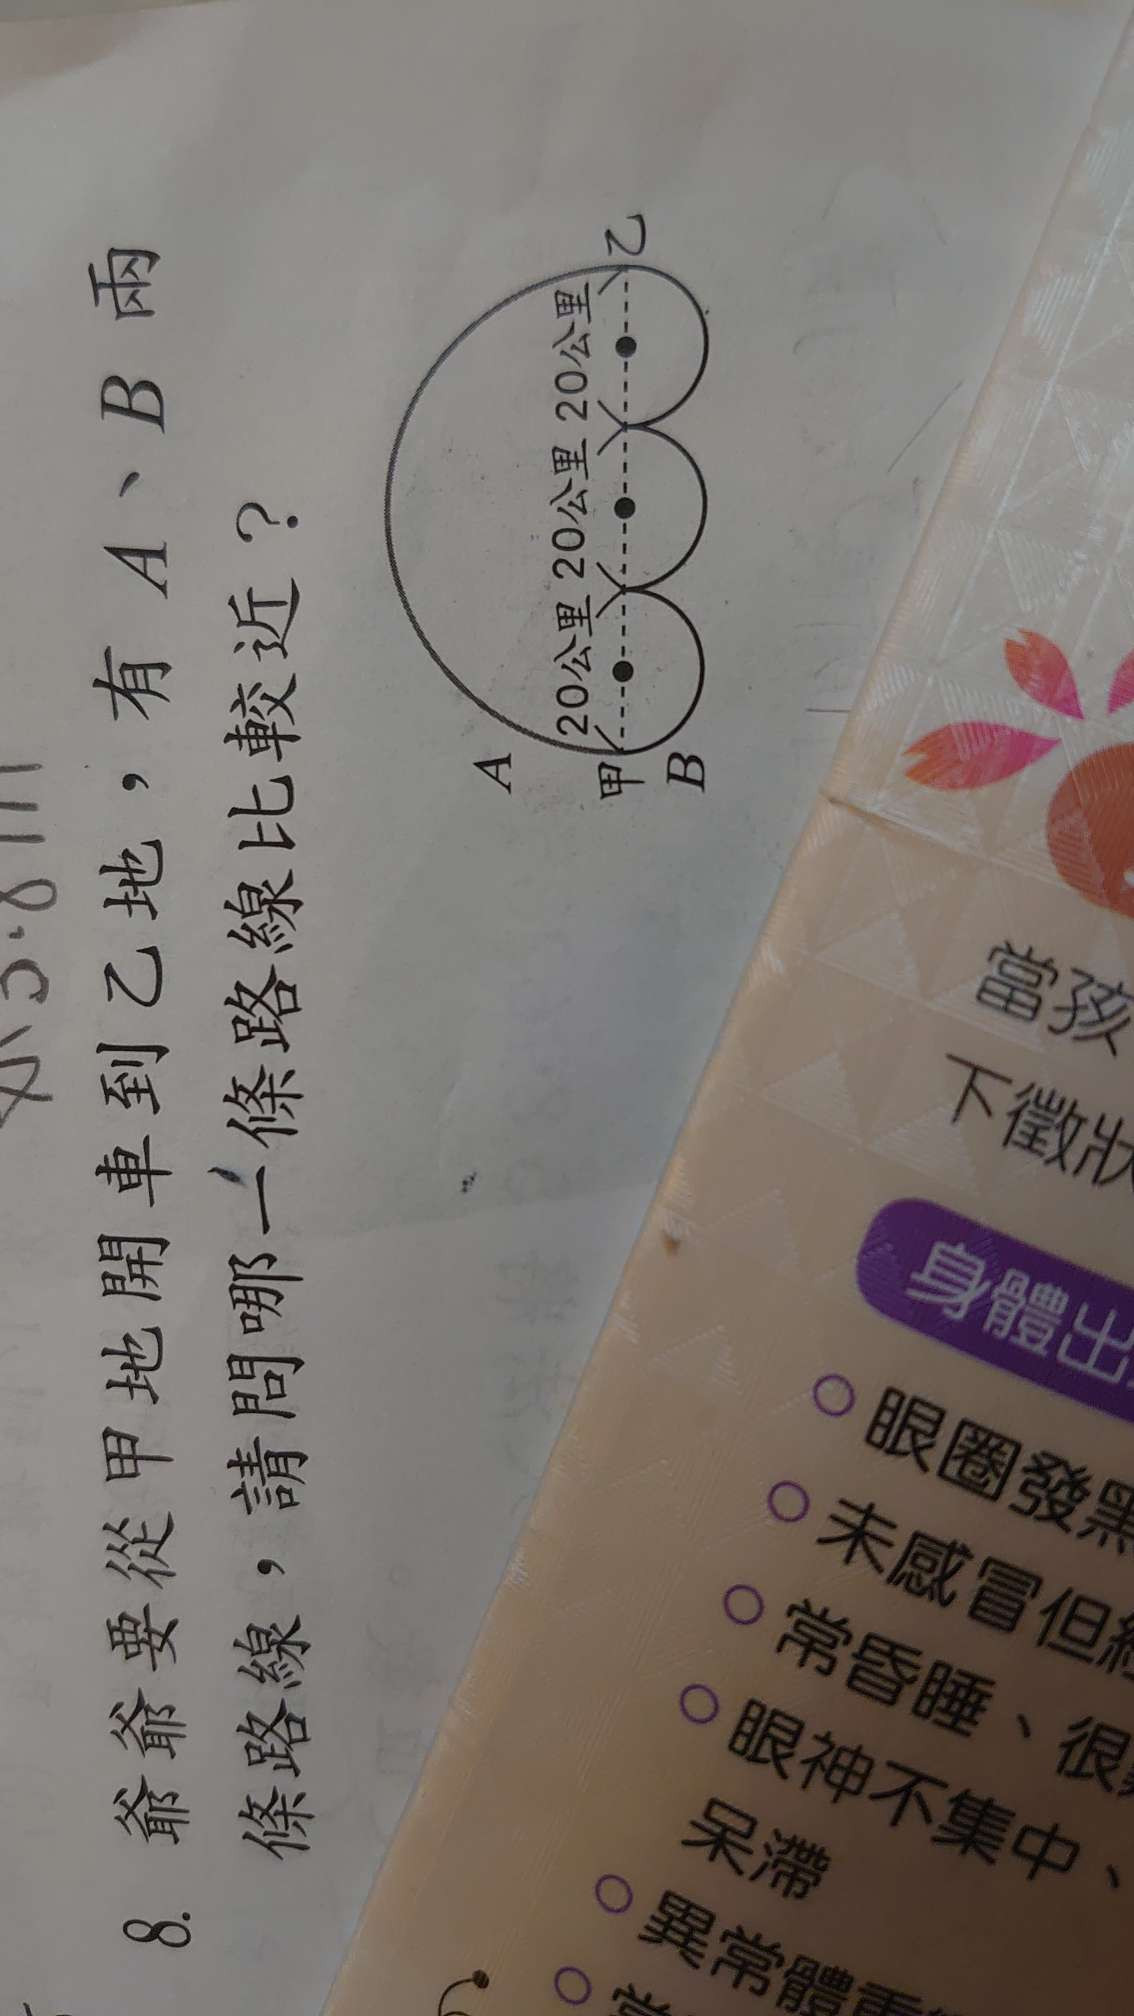 8. 爺爺要從甲地開車到乙地，有 A、B 兩
條路線，請問哪一條路線比較近？
A
20公里 20公里 20公里
甲 乙
B
當孩
下徵狀
身體出
○ 眼圈發黑
○ 未感冒但經
○ 常昏睡、很
○ 眼神不集中、
呆滯
○ 異常體重